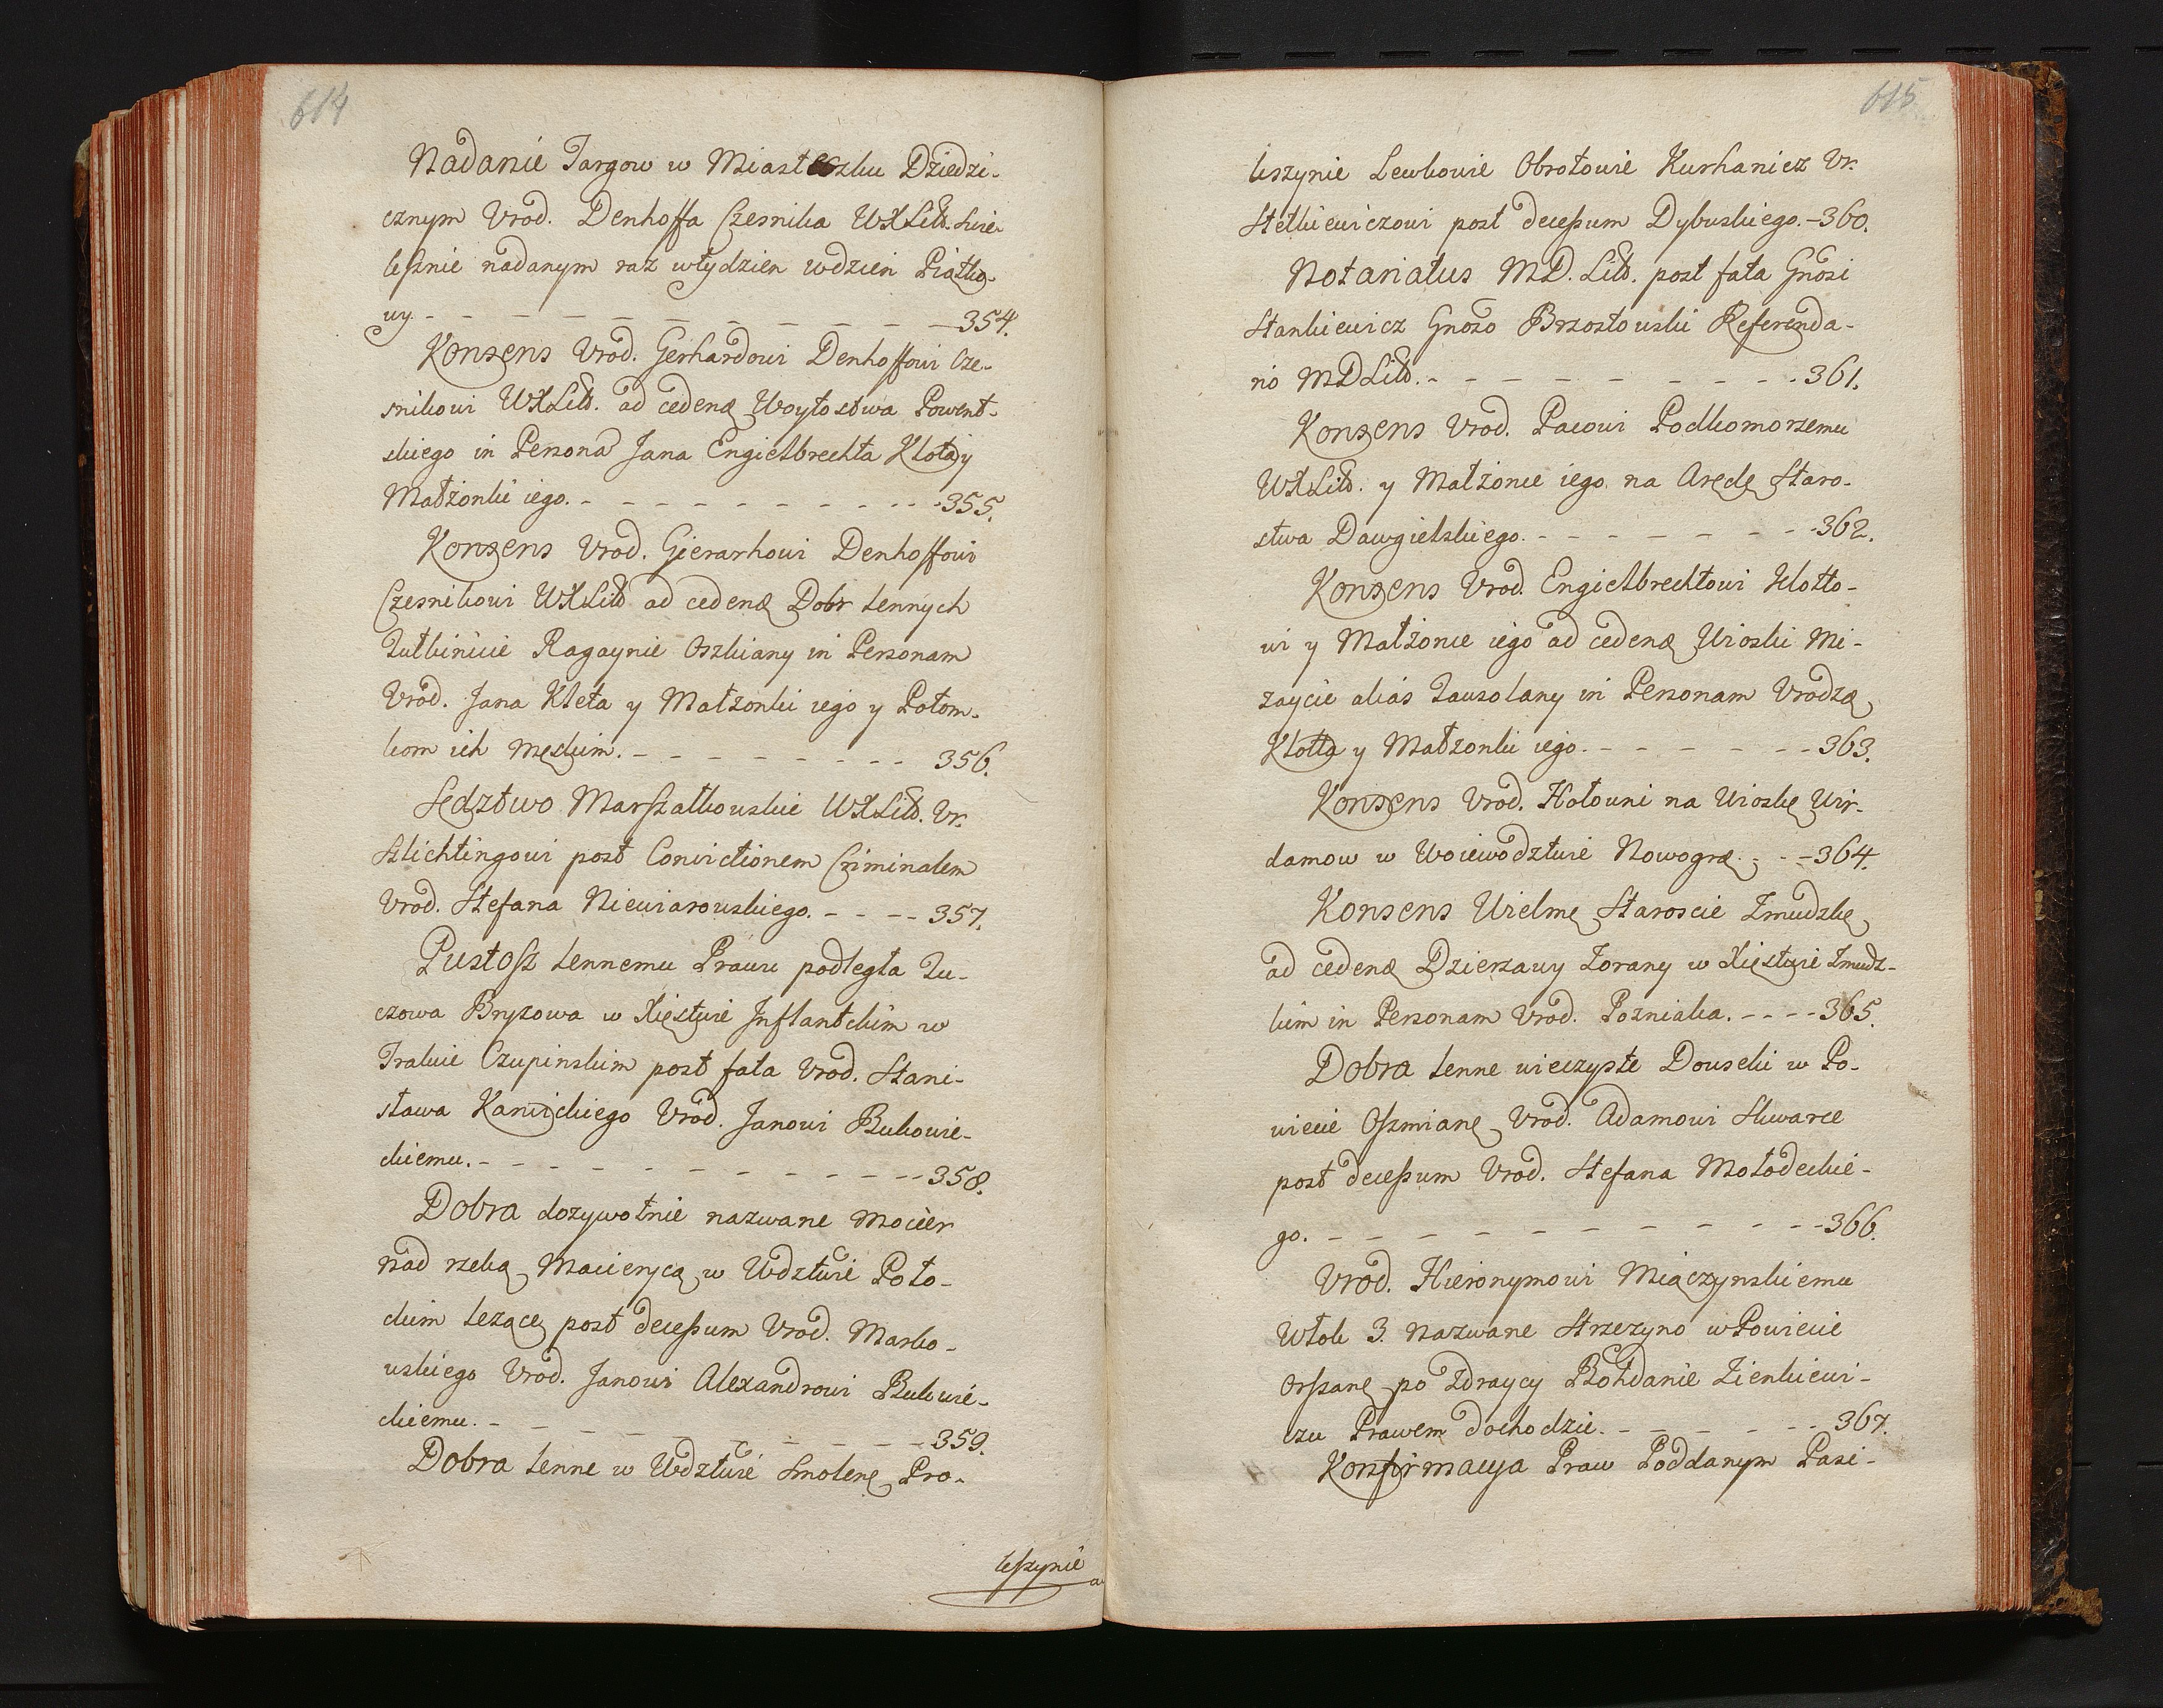 614
Nadanie Targow w Miasteczku Dziedzi-
cznym Urod. Denhoffa Czesnika WXLitt.
leßnie nadanym raz wtydzien wdzien Piątko-
wy. - - - - - - - - - - 354.
Konsens Urod. Gerhardowi Denhoffowi Cze-
snikowi WXLitt. ad cedendę Woytostwa
skiego in Persona Jana Engielbrechta Klota y
Małżonki iego. - - - - - - - - - 355.
Konsens Urod. Gierarhowi Denhoffowi
Czesnikowi WXLitt ad cedendę Dobr lennych
Ragaynie Oszkiany in Personam
Urod. Jana Kleta y Małżonki iego y Potom-
kom ich męskim. - - - - - - - - 356.
Sędztwo Marszałkowskie WXLitt. Ur.
Szlichtingowi post Convictionem Criminalem
Urod. Stefana Niewiarowskiego. - - - - 357.
Pustosz lennemu Prawu podległa Lu-
czowa Bryzowa w Xięstwie Inflantskim w
Trakcie Czupinskim post fata Urod. Stani-
sława Kanickiego Urod. Janowi Bukowie-
ckiemu. - - - - - - - - - - 358.
Dobra dozywotnie nazwane Mocier
nad rzeką Macierycą w Wdztwie Poło-
ckim lezące post decessum Urod. Marko-
wskiego Urod. Janowi Alexandrowi Bukowie-
ckiemu. - - - - - - - - - - 359.
Dobra lenne w Wdztwie Smolenę Pro-
leszynie
615
leszynie Lewkowie Obrotowie Kurhanicz Ur.
Stetkiewiczowi post decessum Dybuskiego. - 360.
Notariatus MD. Litt. post fata Gnosi
Stankiewicz Gnoso Brzostowski Referenda-
rio MDLitt. - - - - - - - - - 361.
Konsens Urod. Pacowi Podkomorzemu
WXLitt. y Małżonce iego na Arędę Staro-
stwa Dawgielskiego. - - - - - - - 362.
Konsens Urod. Engielbrechtowi Klotto-
wi y Małżonce iego ad cedendę Wioski Mi-
zaycie alias Lauzolany in Personam Urodzę
Klotta y Małzonki iego. - - - - - - 363.
Konsens Urod. Hołowni na Wioskę Wir-
damow w Woiewodztwie Nowogrę. - - - 364.
Konsens Wielmę Staroscie Zmudzkę
ad cedendę Dzierzawy Zorany w Xięstwie Zmudz-
kim in Personam Urod. Pozniaka. - - - - 365.
Dobra lenne wieczyste Douseki w Po-
wiecie Oszmianę Urod. Adamowi Skwarce
post decessum Urod. Stefana Mołodeckie-
go. - - - - - - - - - - 366.
Urod. Hieronymowi Miączynskiemu
Włok 3. nazwane Strzezyno w Powiecie
Orszanę po Zdraycy Bohdanie Zienkiewi-
czu Prawem dochodzic. - - - - - - 367.
Konfirmacya Praw Poddanym Pasi-